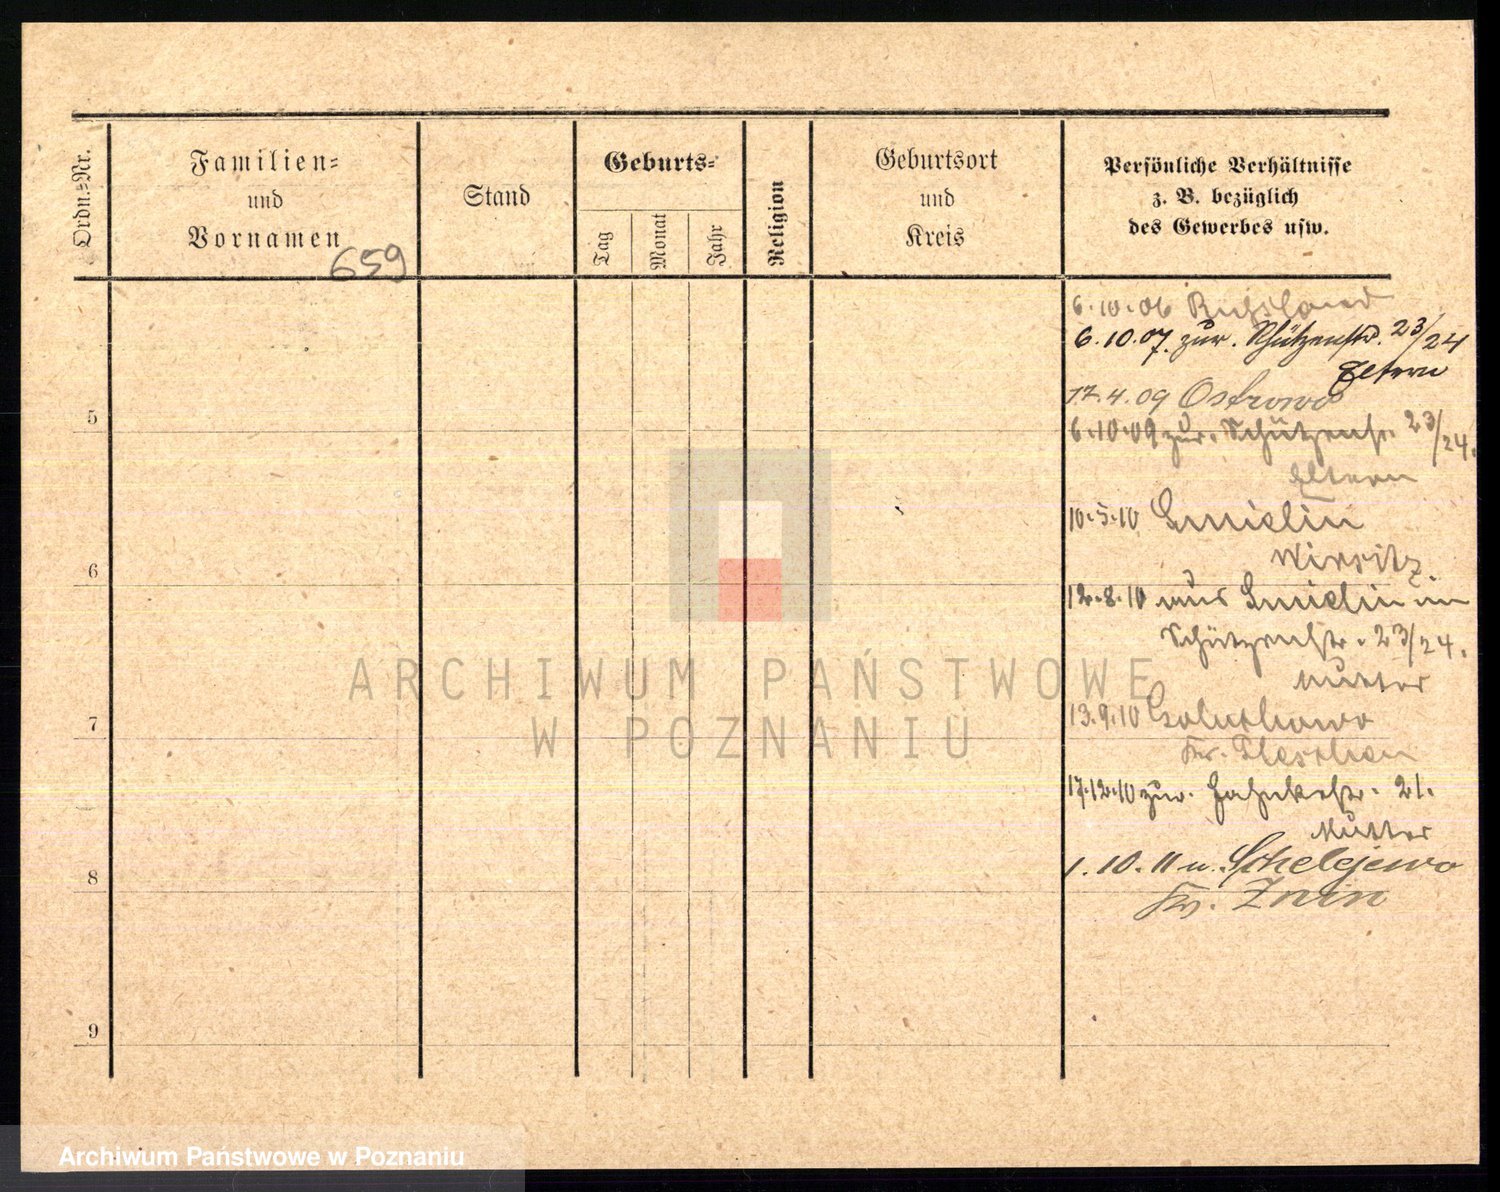 Ordn.-Nr.
Familien-
und
Vornamen
659
Stand
Geburts-
Tag
Monat
Jahr
Religion
Geburtsort
und
Kreis
Persönliche Verhältnisse
z. B. bezüglich
des Gewerbes usw.
6.10.06 Russland
6.10.07 zur. Schützenstr. 23/24
Eltern
17.4.09 Ostrowo
5
6.10.09 zur. Schützenstr. 23/24.
Eltern
10.5.10
Wirsitz
6
12.8.10 aus
Schützenstr. 23/24.
Mutter
13.9.10 Goluchowo
7
Kr. Pleschen
17.12.10 zur. 21.
Mutter
1.10.11 n. Schelejewo
8
Kr. Znin
9
ARCHIWUM PAŃSTWOWE
W POZNANIU
Archiwum Państwowe w Poznaniu